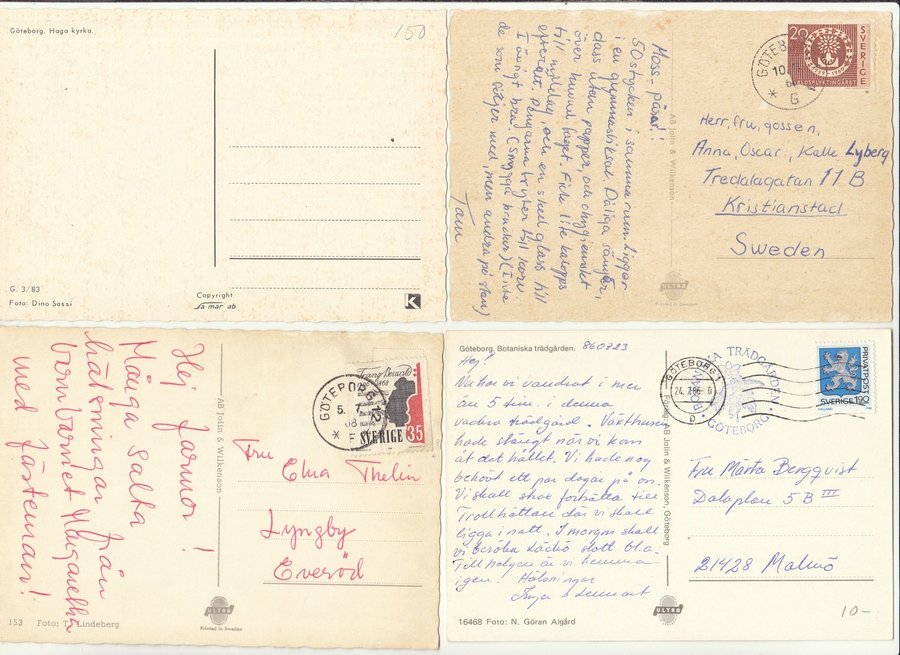 Göteborg. Haga kyrka.
150
G. 3/83
Foto: Dino Sassi
Copyright
Sa-mar ab
K
Moss-påsar!
50 stycken i samma rum. Ligger
i en gymnastiksal. Dåliga sängar,
dass utan papper, och ohygieniskt
över huvud taget. Fick lite kalops
till middag, och en sked glass till
efterrätt. Pengarna tryter till korv
I övrigt bra! (Snygga brudar) (Inte
de som följer med, men andra på stan)
Tam
AB Jolin & Wilkenson
20
SVERIGE
GÖTEB
10
6
G
Herr, fru, gossen,
Anna, Oscar, Kalle Lyberg
Tredalagatan 11 B
Kristianstad
Sweden
ULTRA
Printed in Sweden
Hej farmor!
Många salta
hälsningar från
barnbarnet Margaretha
med fästeman!
153 Foto: T. Lindeberg
AB Jolin & Wilkenson
ULTRA
Printed in Sweden
Franz Berwald
1868
SVERIGE 35
GÖTEBORG 12
5. 7
68
F
Fru
Elna Thelin
Lyngby
Everöd
Göteborg. Botaniska trädgården. 860723
Hej!
Nu har vi vandrat i mer
än 5 tim. i denna
vackra trädgård. Växthusen
hade stängt när vi kom
åt det hållet. Vi hade nog
behövt ett par dagar på oss.
Vi skall strax fortsätta till
Trollhättan där vi skall
ligga i natt. I morgon skall
vi besöka Läckö slott bl.a.
Till helgen är vi hemma
igen! Hälsningar
Inger o Lennart
16468 Foto: N. Göran Algård
Förlag: AB Jolin & Wilkenson, Göteborg
ULTRA
GÖTEBORG 1
24. 7.86
D
BOTANISKA TRÄDGÅRDEN
GÖTEBORG
PRIVATPOST
SVERIGE 190
HALLAND
Fru Märta Bergqvist
Dalaplan 5 B III
21428 Malmö
10-